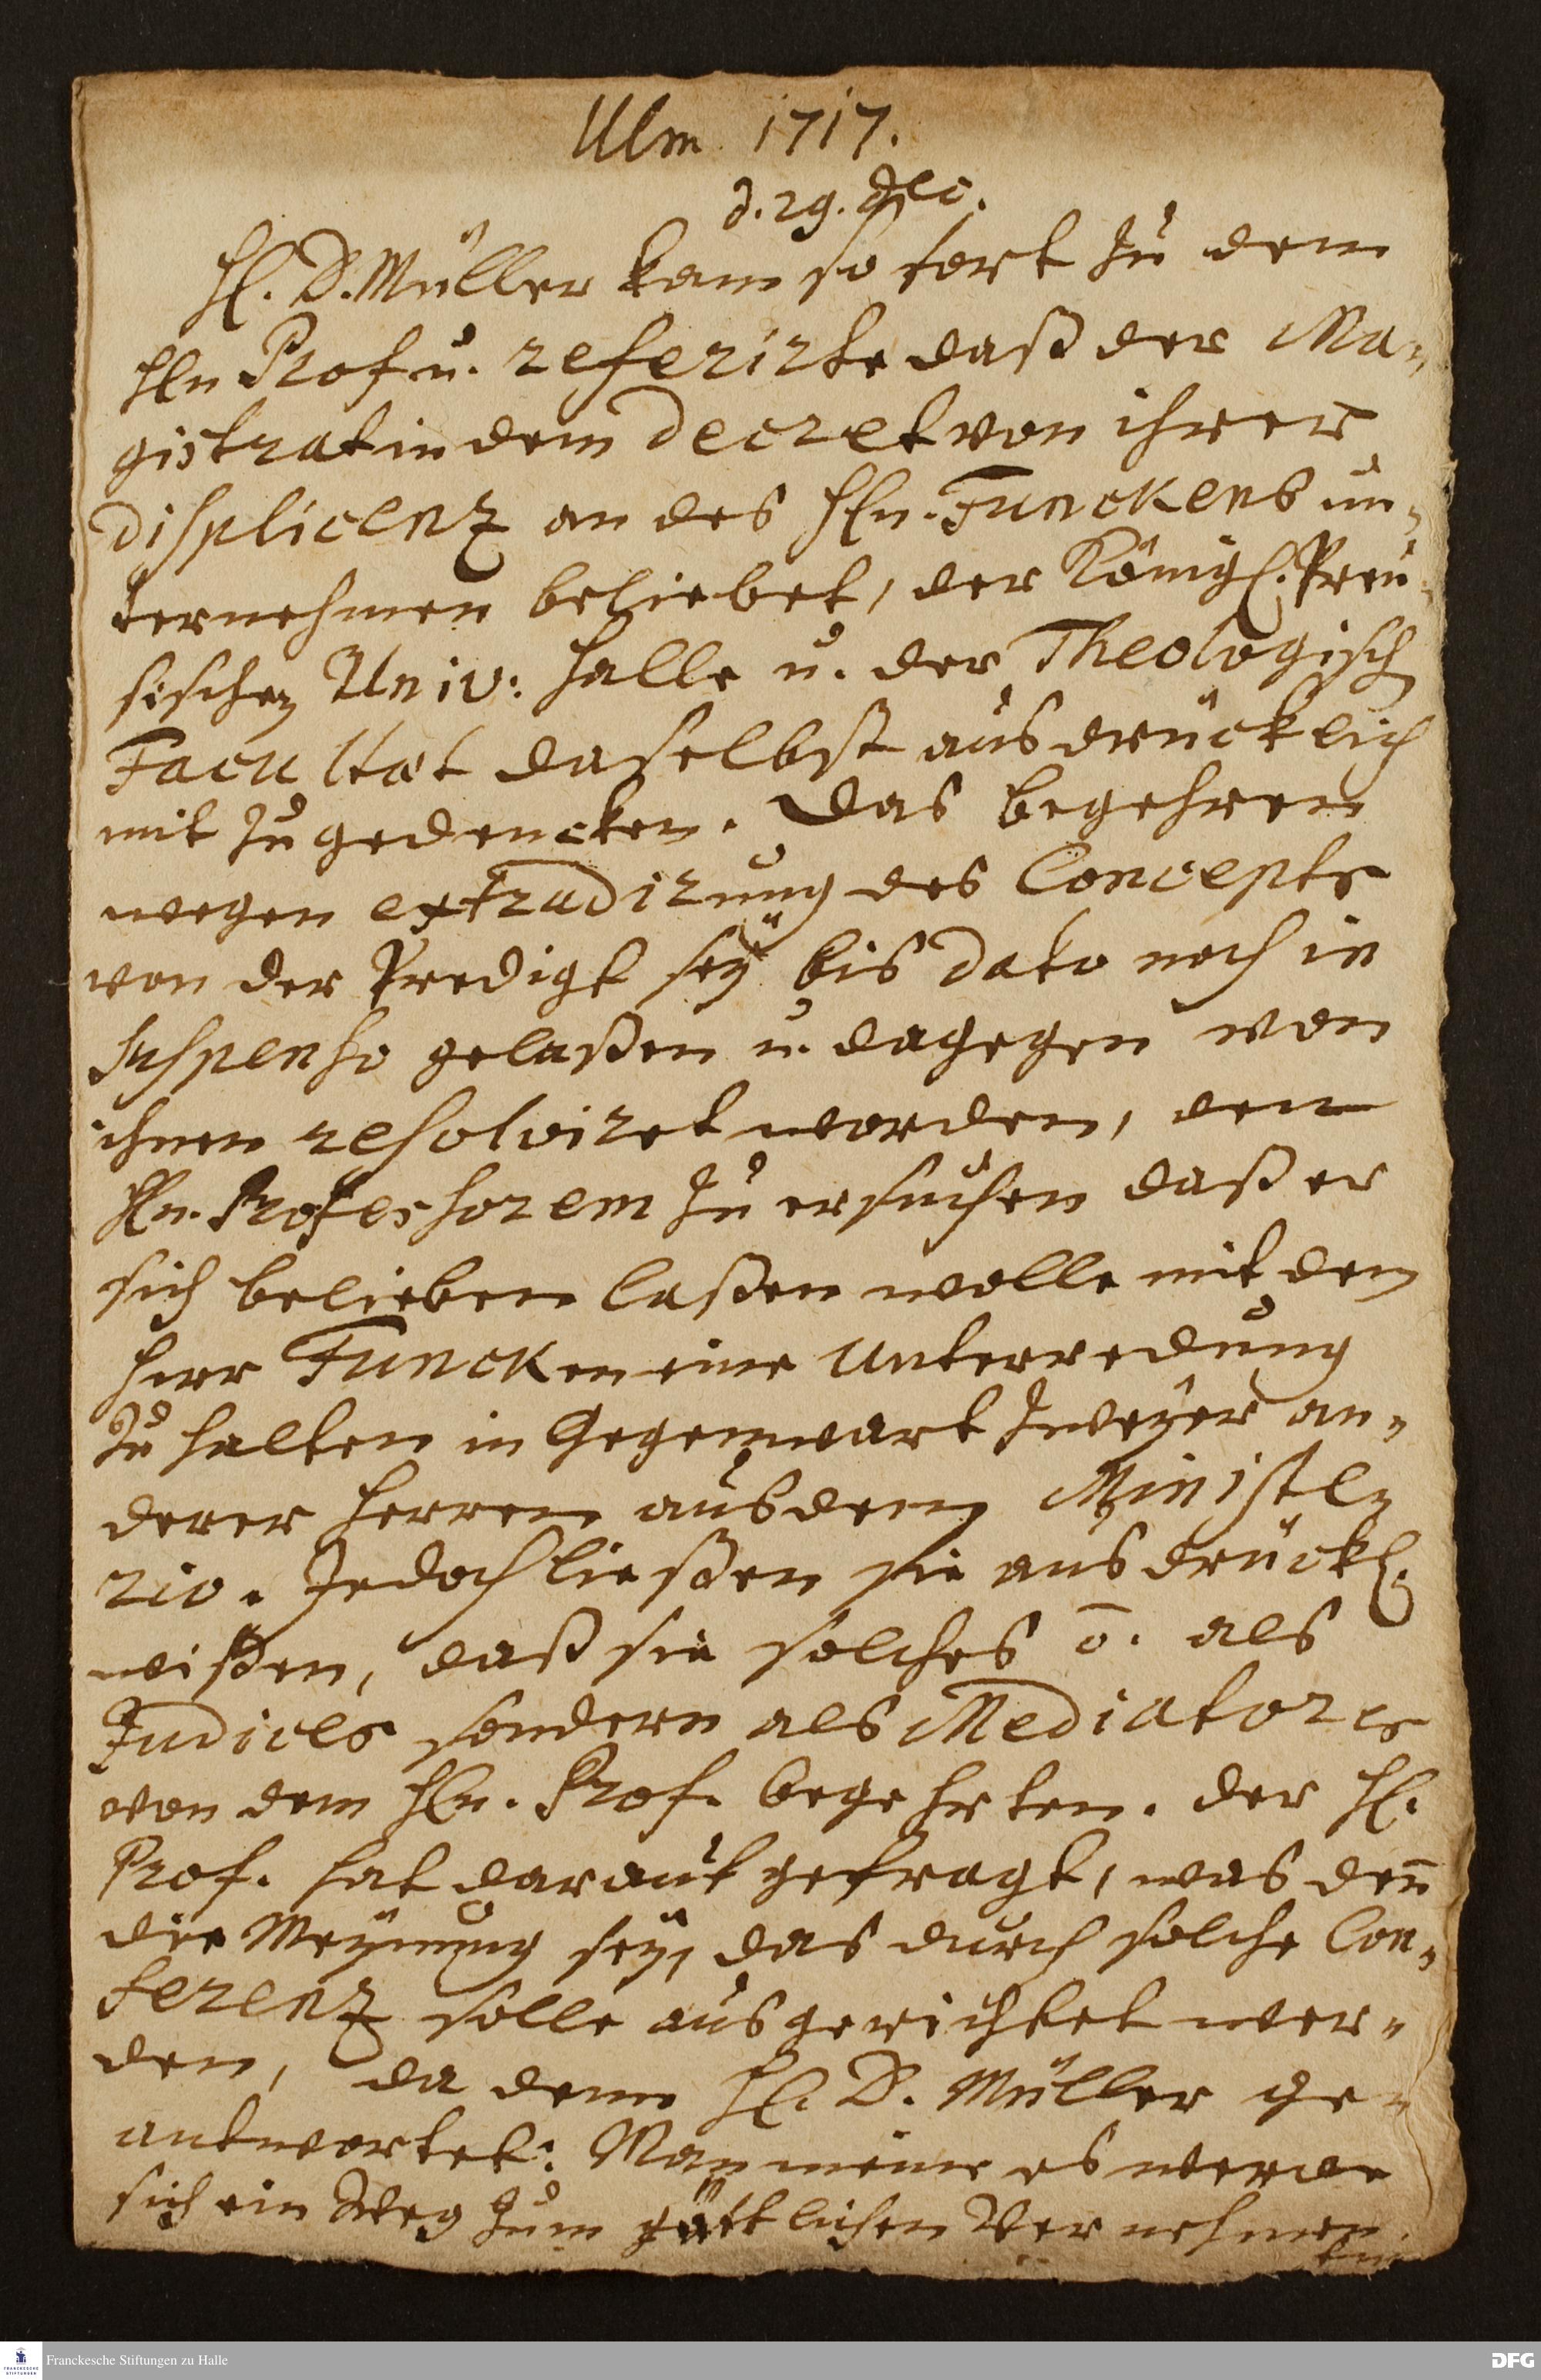 Ulm 1717.
d. 29. Dec.
H. D. Müller kam so fort zu dem
Hn Prof u. referirte daß der Ma-
gistrat in dem Decret von ihrer
displicenz an des Hn. Funckens un-
ternehmen beliebet, der Königl. Preu-
sischen Univ: Halle u. der Theologisch
Facultät daselbst ausdrücklich
mit zu gedencken. Das begehren
wegen extradirung des Concepts
von der Predigt seÿ bis dato noch in
Suspenso gelaßen u. dagegen von
ihnen resolviret worden, den
Hn. Professorem zu ersuchen daß er
sich belieben laßen wolle mit dem
Herr Funcken eine Unterredung
zu halten in Gegenwart zweÿer an-
derer Herren aus dem Ministe-
rio. Jedoch ließen sie ausdrückl.
wißen, daß sie solches o. als
Judices sondern als Mediatores
von dem Hn. Prof. begehrten. Der H.
Prof. hat darauf gefragt, was den̄
die Meÿnung seÿ, das durch solche Con-
ferenz solle ausgerichtet wer-
den, da denn H. D. Müller ge-
antwortet: Man meine es werde
sich ein Weg zum gütlichen Vernehmen
Franckesche Stiftungen zu Halle
FRANCKESCHE STIFTUNGEN
DFG